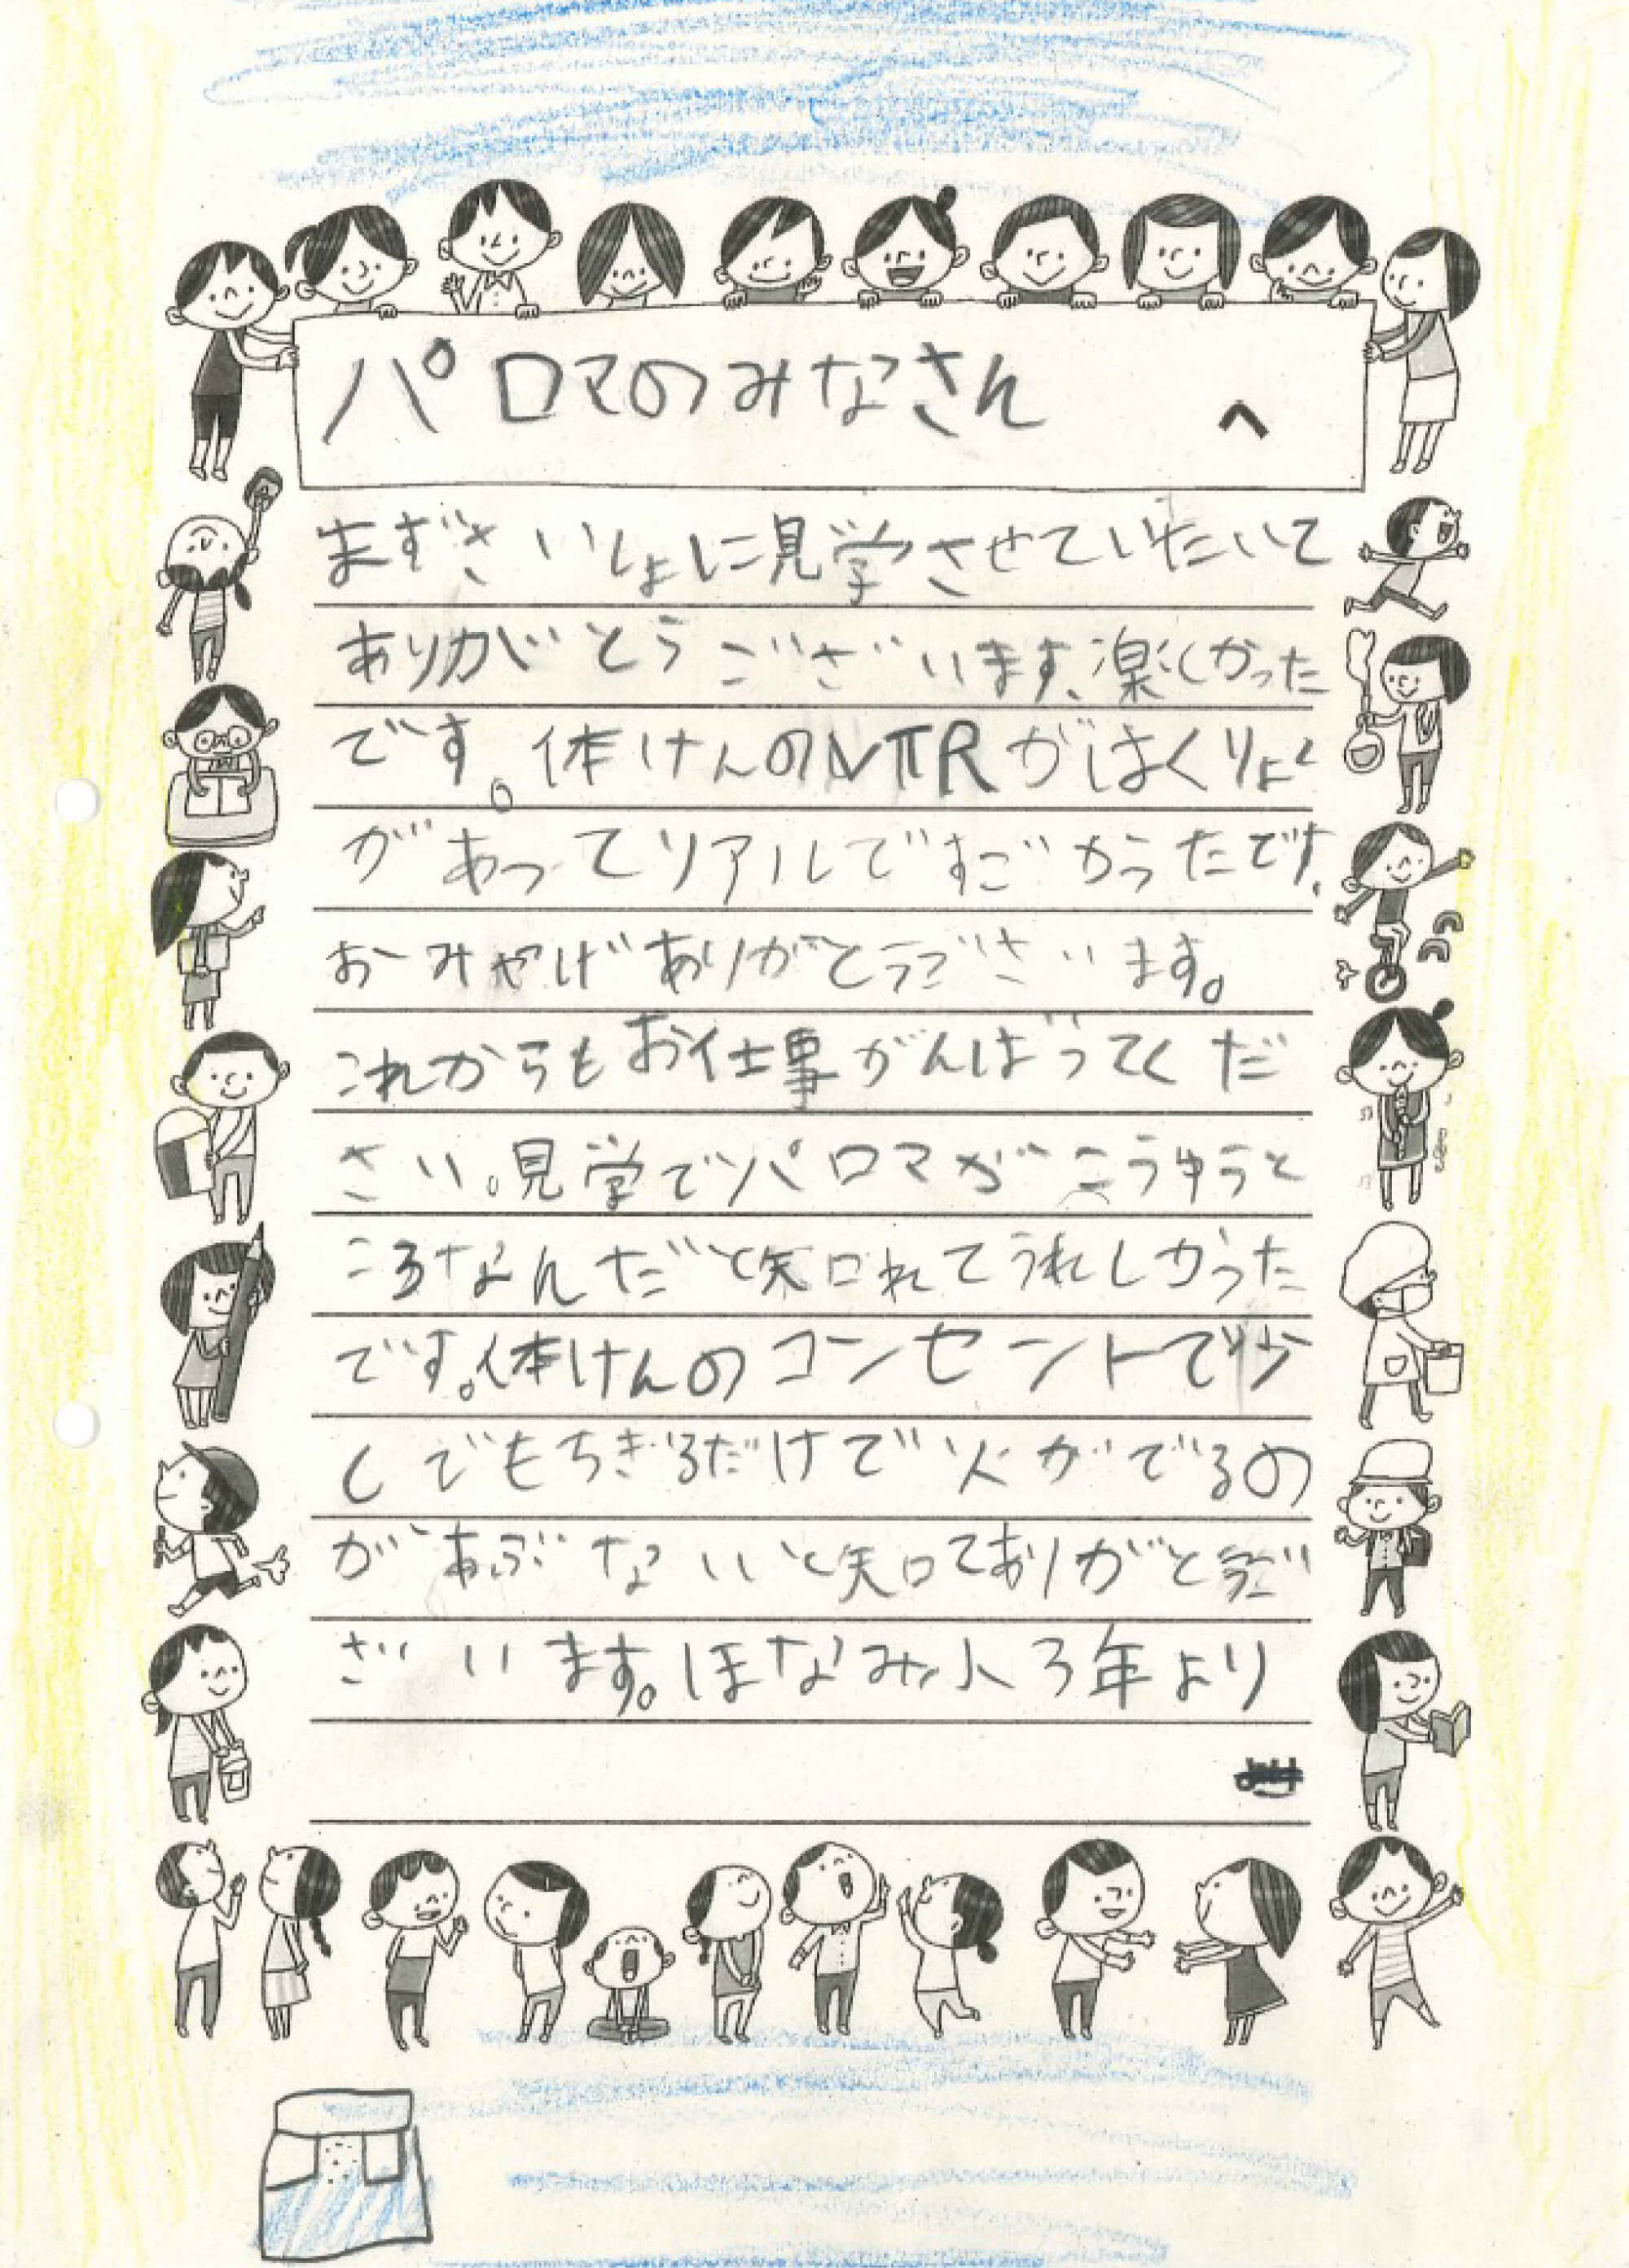 パロマのみなさん へ
まずさいしょに見学させていただいて
ありがとうございます、楽しかった
です。体けんのVTRがはくりょく
があってリアルですごかったです、
おーみやげありがとうございます。
これからもお仕事がんばってくだ
さい。見学でパロマがこうゆうと
ころなんだと知れてうれしかった
です。体けんのコンセントで少
しでもちぎるだけで火がでるの
があぶないと知ってありがとうご
ざいます。ほなみ小3年より